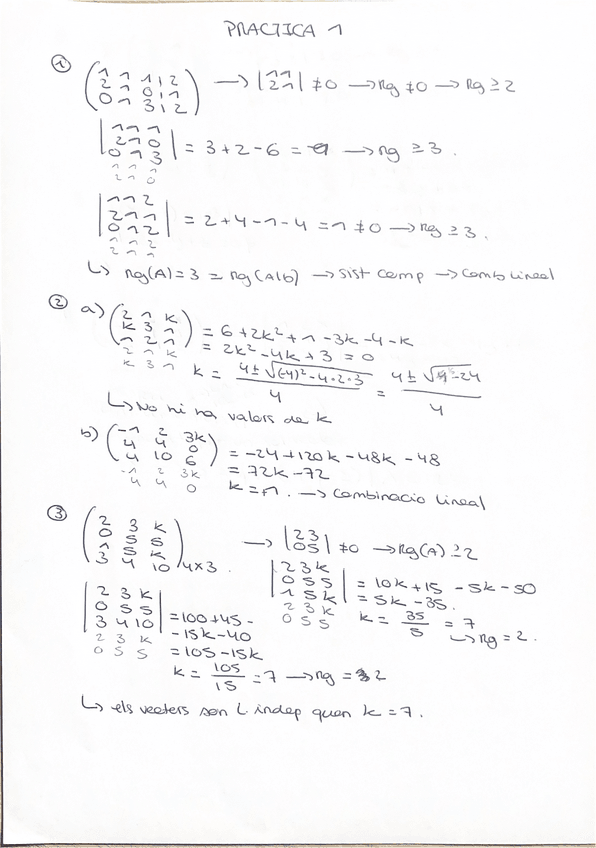 PRACTICA 1
① ( 1 1 1 | 2
2 1 0 | 1
0 1 3 | 2 ) → | 1 1
2 1 | ≠ 0 → rg ≠ 0 → rg ≥ 2
| 1 1 1
2 1 0
0 1 3 | = 3 + 2 - 6 = → rg ≥ 3.
1 1 1
2 1 0
| 1 1 2
2 1 1
0 1 2 | = 2 + 4 - 1 - 4 = 1 ≠ 0 → rg ≥ 3.
1 1 2
2 1 1
↳ rg(A) = 3 = rg(A|b) → sist comp → Comb lineal
② a) ( 2 1 k
k 3 1
1 2 1 ) = 6 + 2k² + 1 - 3k - 4 - k
2 1 k
k 3 1
= 2k² - 4k + 3 = 0
k = 4 ± √(-4)² - 4·2·3 / 4 = 4 ± √ - 24 / 4
↳ No hi ha valors de k
b) ( -1 2 3k
4 4 0
4 10 6 ) = -24 + 120k - 48k - 48
-1 2 3k
4 4 0
= 72k - 72
k = 1. → Combinacio lineal
③ ( 2 3 k
0 5 5
1 5 k
3 4 10 ) 4x3. → | 2 3
0 5 | ≠ 0 → Rg(A) ≥ 2
| 2 3 k
0 5 5
1 5 k | = 10k + 15 - 5k - 50
2 3 k
0 5 5
= 5k - 35.
k = 35 / 5 = 7
↳ rg = 2.
| 2 3 k
0 5 5
3 4 10 | = 100 + 45 -
- 15k - 40
2 3 k
0 5 5
= 105 - 15k
k = 105 / 15 = 7 → rg = 2
↳ els vectors son l. indep quan k = 7.